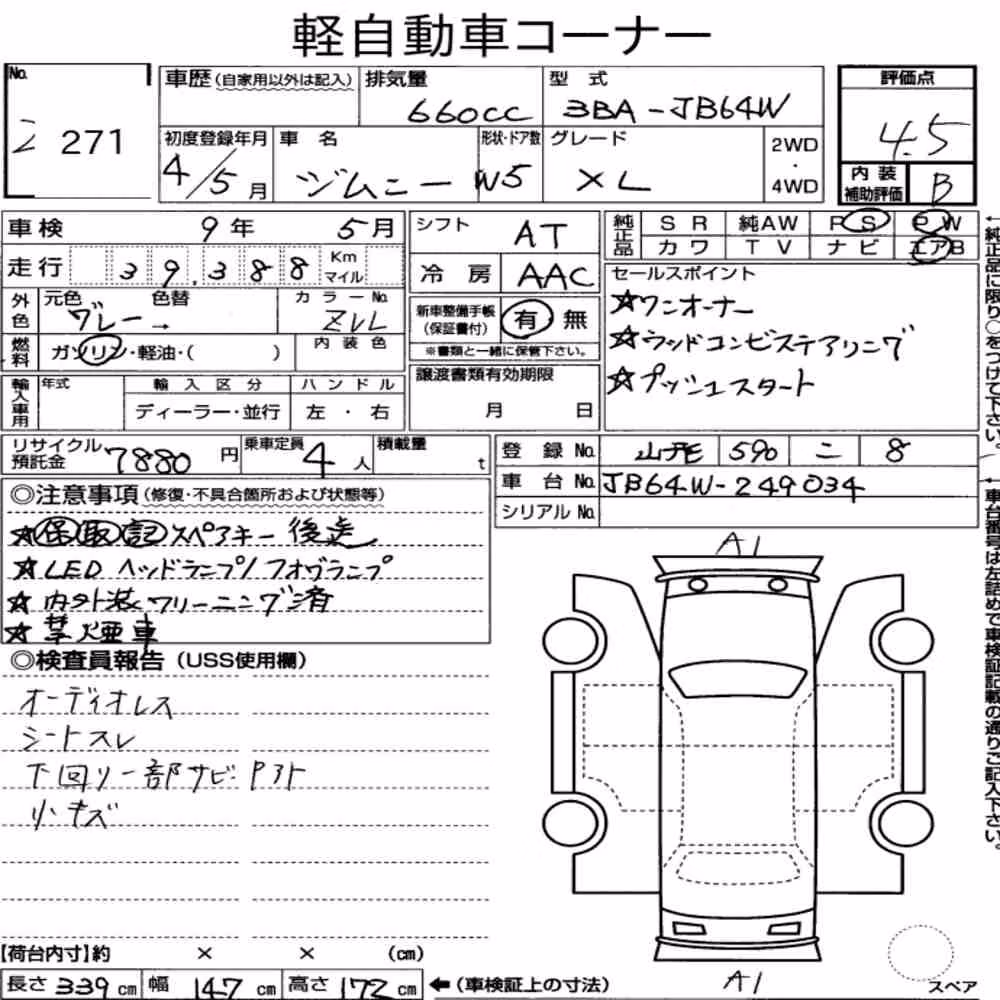 軽自動車コーナー
No. 271
車歴(自家用以外は記入) 排気量 660cc 型式 3BA-JB64W 評価点 4.5
初度登録年月 4/5月 車名 ジムニー 形状・ドア数 W5 グレード XL 2WD・4WD 内装補助評価 B
車検 9年 5月 シフト AT 純正品 SR 純AW PS PW
カワ TV ナビ エアB
走行 39,388 Km マイル 冷房 AAC セールスポイント
外色 元色 グレー→ 色替 カラーNo. ZVL 新車整備手帳(保証書付) 有 無 ☆ワンオーナー
燃料 ガソリン・軽油・( ) 内装色 ※書類と一緒に保管下さい。 ☆ウッドコンビステアリング
輸入車用 年式 輸入区分 ハンドル 譲渡書類有効期限 ☆プッシュスタート
ディーラー・並行 左・右 月 日
←純正品に限り○をつけて下さい。
リサイクル預託金 7880円 乗車定員 4人 積載量 t 登録No. 山形 590 こ 8
車台No. JB64W-249034
シリアルNo.
←車台番号は左詰めで車検証記載の通りご記入下さい。
◎注意事項(修復・不具合箇所および状態等)
☆保取記スペアキー後送
☆LEDヘッドランプ/フォグランプ
☆内外装クリーニング済
☆禁煙車
◎検査員報告(USS使用欄)
オーディオレス
シートスレ
下回り一部サビ P3ト
小キズ
A1
A1
【荷台内寸】約 × × (cm)
長さ 339cm 幅 147cm 高さ 172cm ←(車検証上の寸法)
スペア